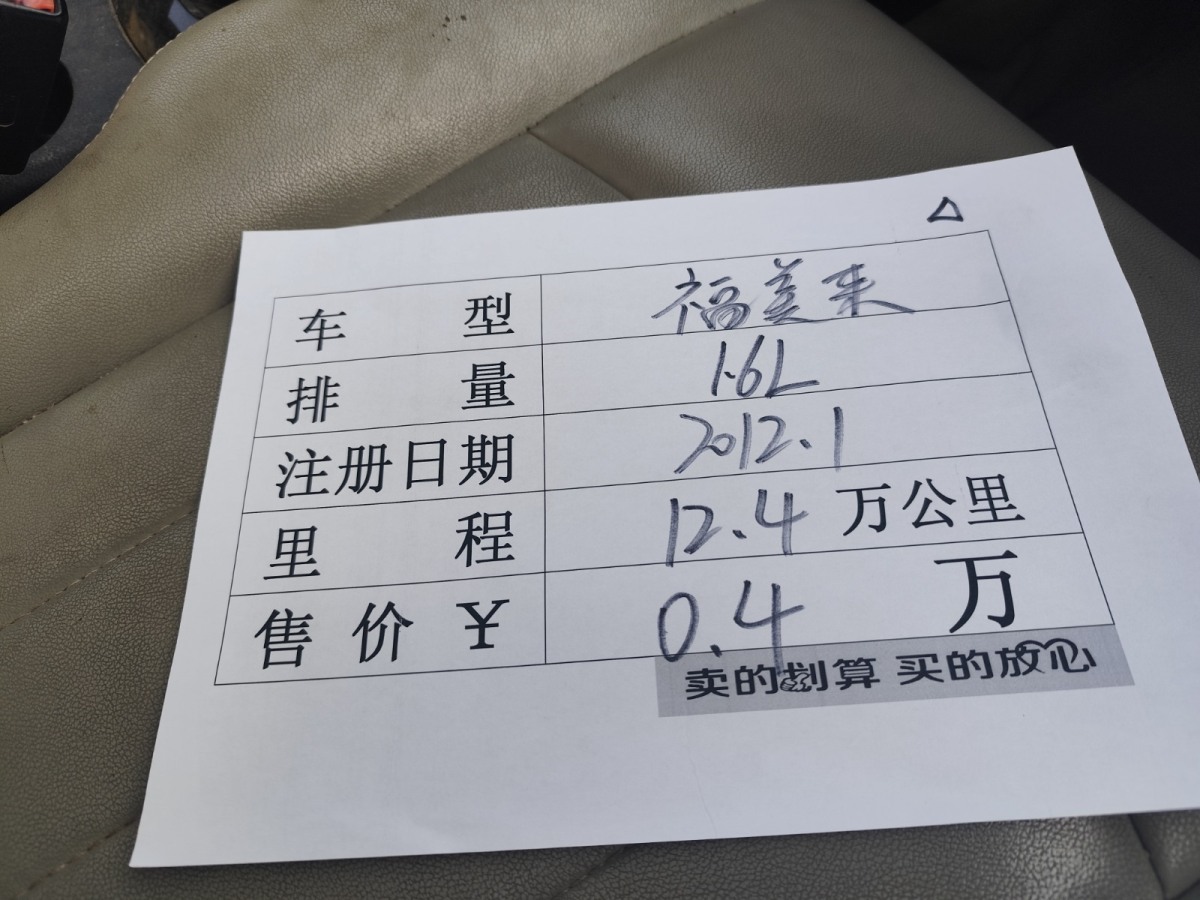 车型 福美来
排量 1.6L
注册日期 2012.1
里程 12.4 万公里
售价¥ 0.4 万
卖的划算 买的放心